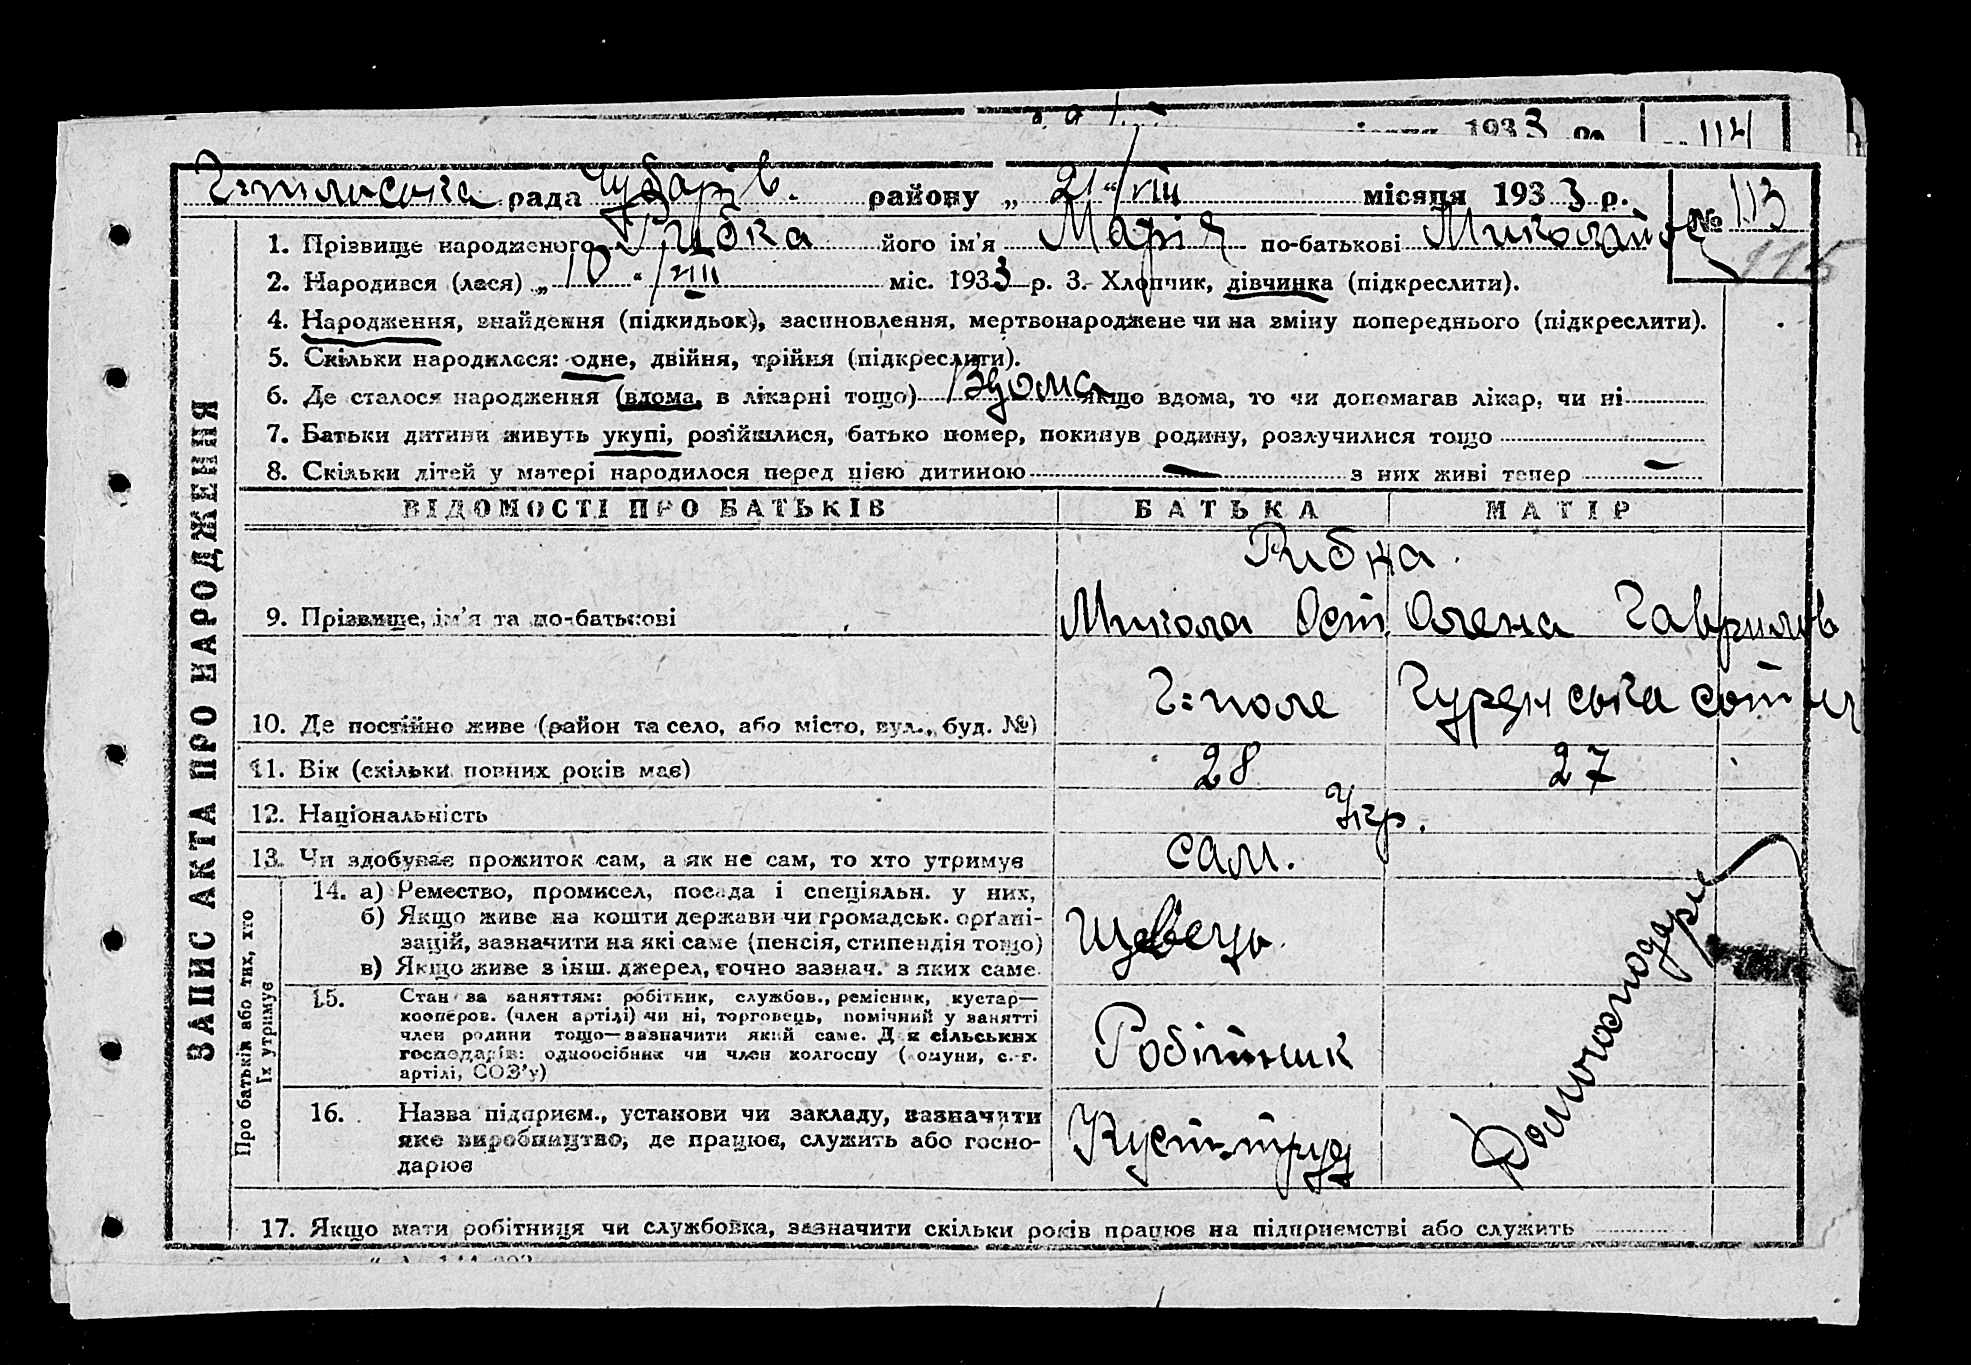 193 3 р. 114
Г=пільська рада Чубарів. району „ 21 “ / VIII місяця 193 3 р. № 113
115
1. Прізвище народженого Рибка його ім'я Марія по-батькові Миколаїв
2. Народився (лася) „ 10 “ / VIII міс. 193 3 р. 3. Хлопчик, дівчинка (підкреслити).
4. Народження, знайдення (підкидьок), засиновлення, мертвонароджене чи на зміну попереднього (підкреслити).
5. Скільки народилося: одне, двійня, трійня (підкреслити).
6. Де сталося народження (вдома, в лікарні тощо) Вдома якщо вдома, то чи допомагав лікар, чи ні
7. Батьки дитини живуть укупі, розійшлися, батько помер, покинув родину, розлучилися тощо
8. Скільки дітей у матері народилося перед цією дитиною — з них живі тепер —
ЗАПИС АКТА ПРО НАРОДЖЕННЯ
ВІДОМОСТІ ПРО БАТЬКІВ БАТЬКА МАТІР
Рибка.
9. Прізвище, ім'я та по-батькові Микола Ост. Олена Гаврилов
10. Де постійно живе (район та село, або місто, вул., буд. №) Г=поле
11. Вік (скільки повних років має) 28 27
12. Національність Укр.
13. Чи здобуває прожиток сам, а як не сам, то хто утримує сам.
Про батьків або тих, хто
їх утримує
14. а) Ремество, промисел, посада і спеціяльн. у них,
б) Якщо живе на кошти держави чи громадськ. орґані-
зацій, зазначити на які саме (пенсія, стипендія тощо)
в) Якщо живе з інш. джерел, точно зазнач. з яких саме.
Швець.
Домогосподарк
15. Стан за заняттям: робітник, службов., ремісник, кустар—
кооперов. (член артілі) чи ні, торговець, помічний у занятті
член родини тощо—зазначити який саме. Для сільських
господарів: одноосібник чи член колгоспу (комуни, с.-г.
артілі, СОЗ'у)
Робітник
16. Назва підприєм., установи чи закладу, зазначити
яке виробництво, де працює, служить або госпо-
дарює
Куст.-труд
17. Якщо мати робітниця чи службовка, зазначити скільки років працює на підприємстві або служить